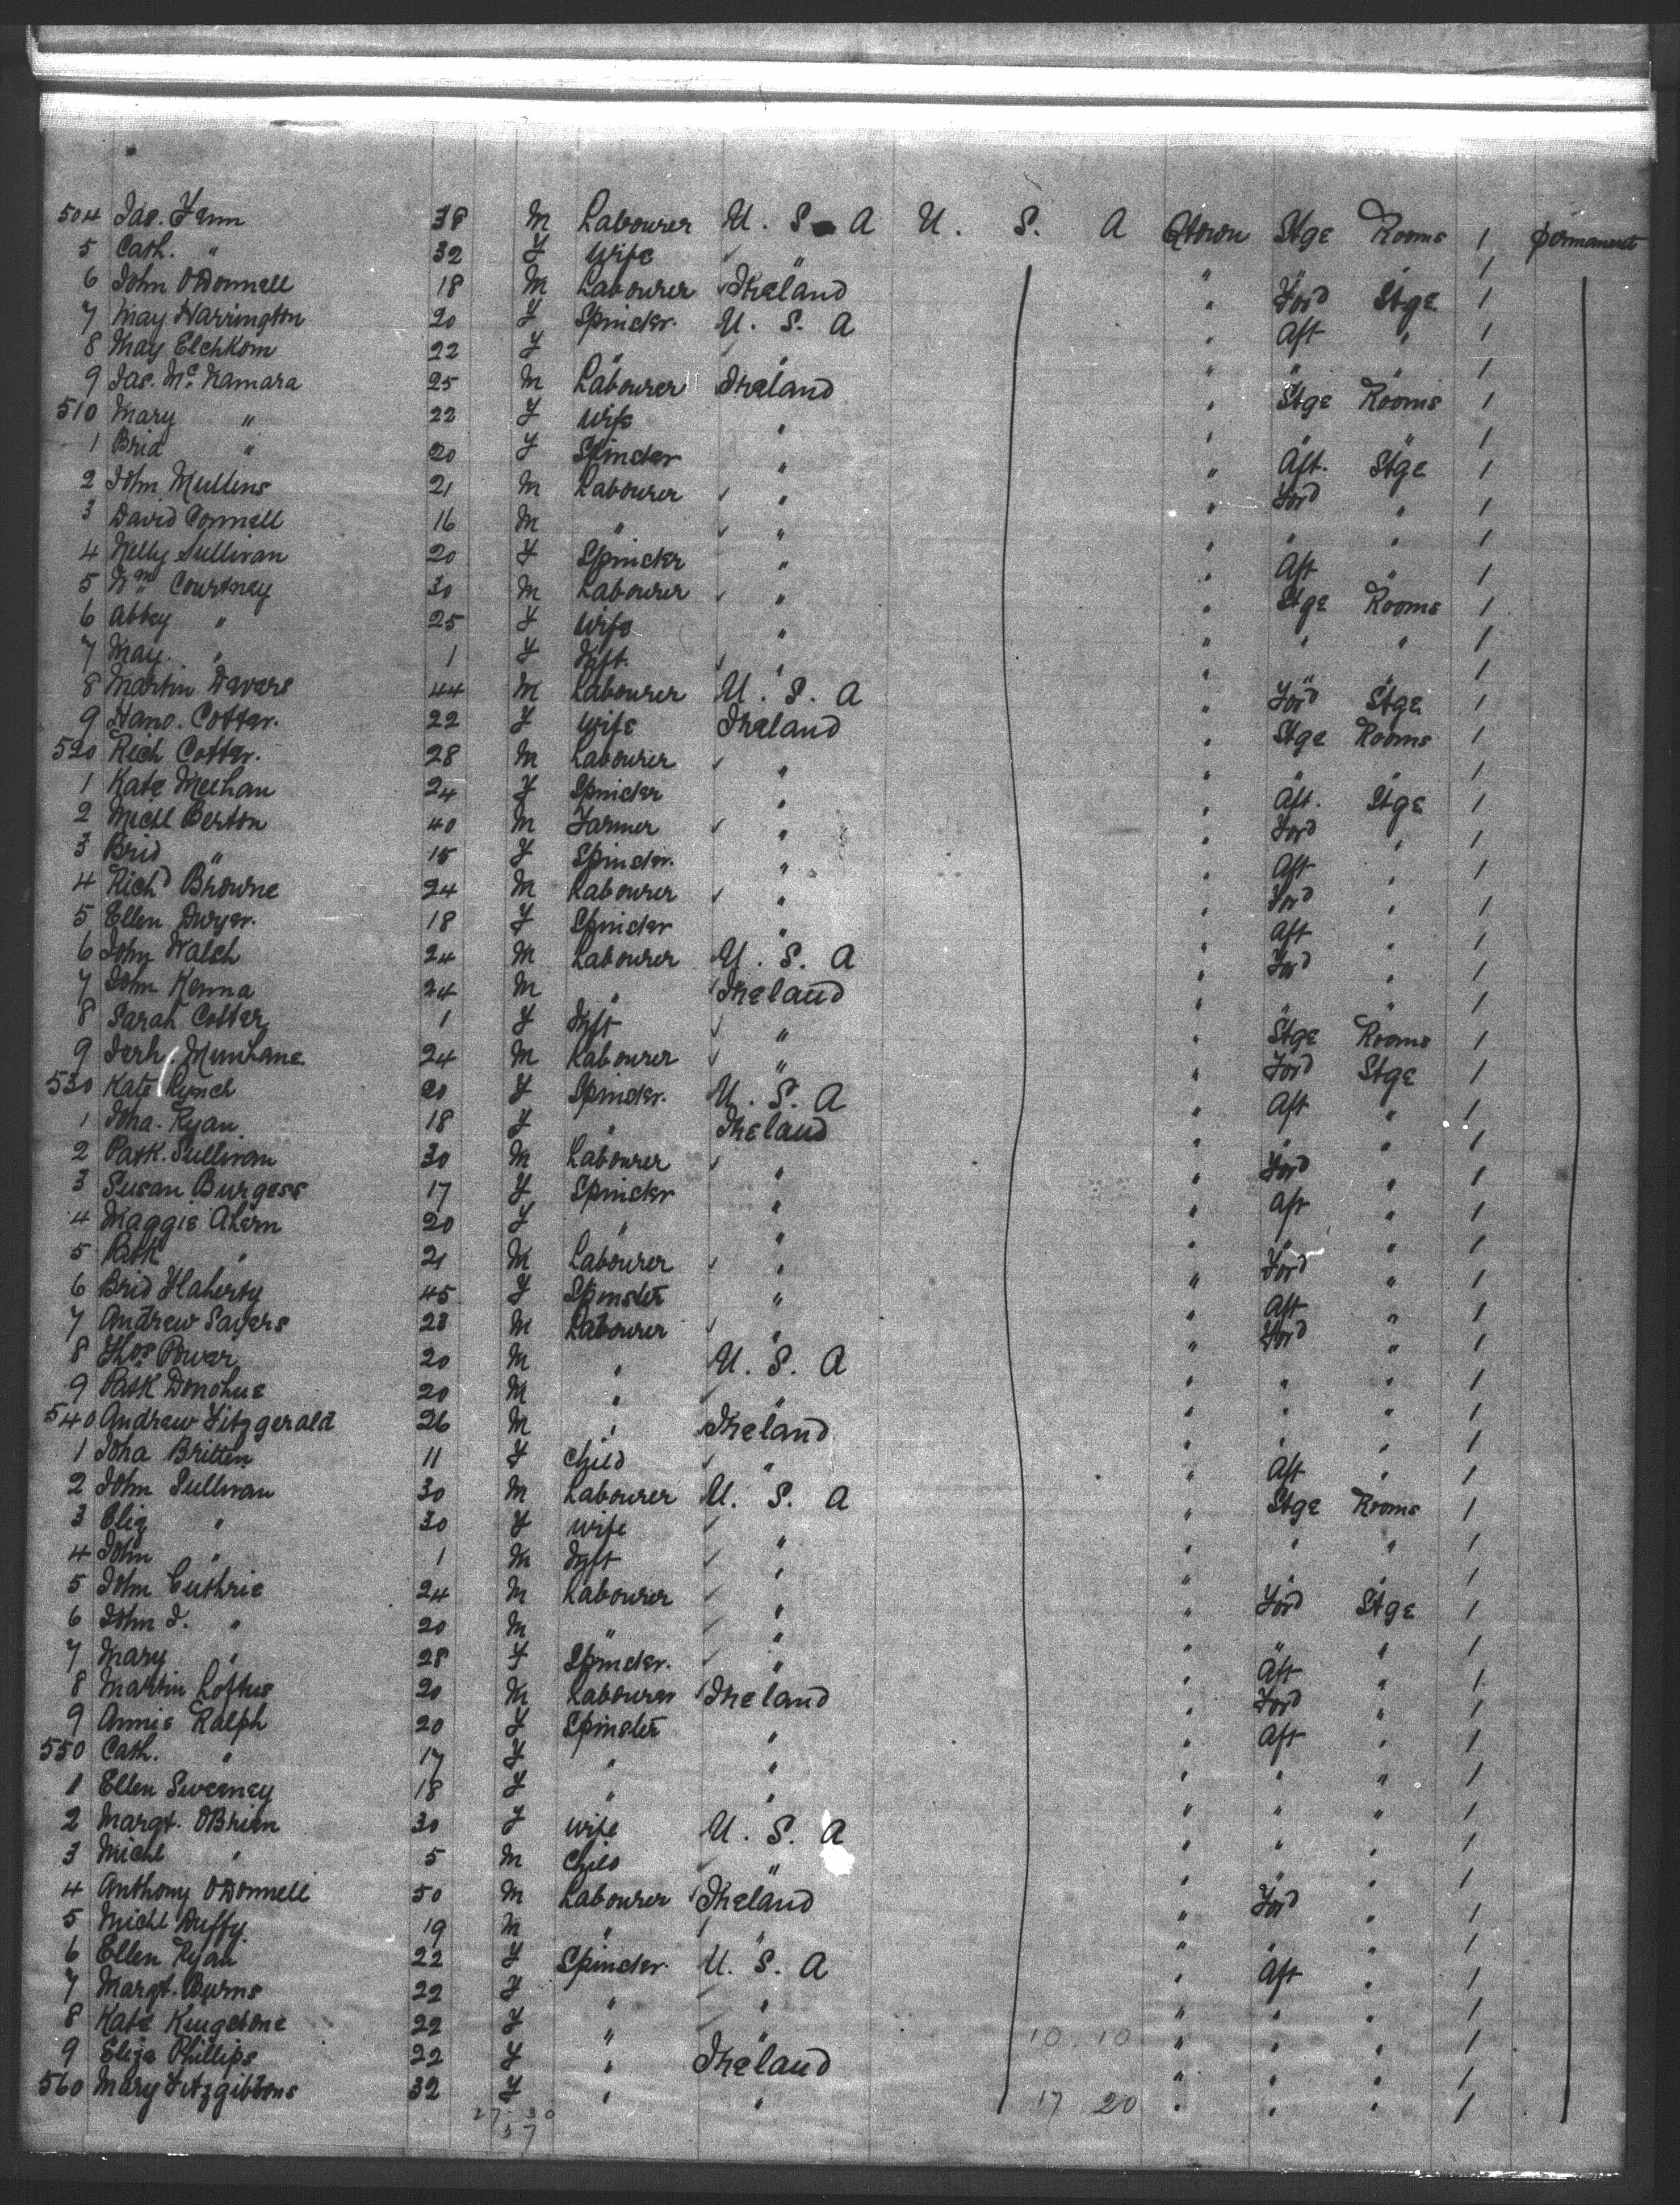 504 Jas. Fenn 38 M Labourer U. S. A U. S. A Qtown Stge Rooms 1 permanent
5 Cath. " 32 F Wife " " " " 1
6 John O'Donnell 18 M Labourer Ireland " Ford Stge 1
7 May Harrington 20 F Spinster. U. S. A " Aft " 1
8 May Elchkom 22 F " " " " " 1
9 Jas. McNamara 25 M Labourer Ireland " Stge Rooms 1
510 Mary " 22 F Wife " " " " 1
1 Brid " 20 F Spinster " " Aft. Stge 1
2 John Mullins 21 M Labourer " " Ford " 1
3 David Connell 16 M " " " " " 1
4 Nelly Sullivan 20 F Spinster " " Aft " 1
5 Wm Courtney 30 M Labourer " " Stge Rooms 1
6 Abbey " 25 F Wife " " " " 1
7 May. " 1 F Inft. " " " " 1
8 Martin Davers 44 M Labourer U. S. A " Ford Stge 1
9 Hano. Cotter. 22 F Wife Ireland " Stge Rooms 1
520 Rich Cotter. 28 M Labourer " " " " 1
1 Kate Meehan 24 F Spinster " " Aft. Stge 1
2 Michl Berton 40 M Farmer " " Ford " 1
3 Brid " 15 F Spinster. " " Aft " 1
4 Richd Browne 24 M Labourer " " Ford " 1
5 Ellen Dwyer. 18 F Spinster " " Aft " 1
6 John Walsh 24 M Labourer U. S. A " Ford " 1
7 John Kenna 24 M " Ireland " " " 1
8 Sarah Cotter 1 F Inft " " Stge Rooms 1
9 Jerh. Munhane. 24 M Labourer " " Ford Stge 1
530 Kate Lynch 20 F Spinster. U. S. A " Aft " 1
1 Joha. Ryan 18 F " Ireland " " " 1
2 Patk. Sullivan 30 M Labourer " " Ford " 1
3 Susan Burgess 17 F Spinster " " Aft " 1
4 Maggie Ahern 20 F " " " " " 1
5 Patk " 21 M Labourer " " Ford " 1
6 Brid Flaherty 45 F Spinster " " Aft " 1
7 Andrew Sayers 23 M Labourer " " Ford " 1
8 Thos Power 20 M " U. S. A " " " 1
9 Patk Donohue 20 M " " " " " 1
540 Andrew Fitzgerald 26 M " Ireland " " " 1
1 Joha Britten 11 F Child " " Aft " 1
2 John Sullivan 30 M Labourer U. S. A " Stge Rooms 1
3 Eliz " 30 F Wife " " " " 1
4 John " 1 M Inft " " " " 1
5 John Guthrie 24 M Labourer " " Ford Stge 1
6 John J. " 20 M " " " " " 1
7 Mary " 28 F Spinster. " " Aft " 1
8 Martin Loftus 20 M Labourer Ireland " Ford " 1
9 Annie Ralph 20 F Spinster " " Aft " 1
550 Cath. " 17 F " " " " " 1
1 Ellen Sweeney 18 F " " " " " 1
2 Margt. O'Brien 30 F Wife U. S. A " " " 1
3 Michl " 5 M Child " " " " 1
4 Anthony O'Donnell 50 M Labourer Ireland " Ford " 1
5 Michl Duffy 19 M " " " " " 1
6 Ellen Ryan 22 F Spinster. U. S. A " Aft " 1
7 Margt. Burns 22 F " " " " " 1
8 Kate Kingstone 22 F " " 10 10 " " " 1
9 Eliza Phillips 22 F " Ireland " " " 1
560 Mary Fitzgibbons 32 F " " 17 20 " " " 1
27 30
57